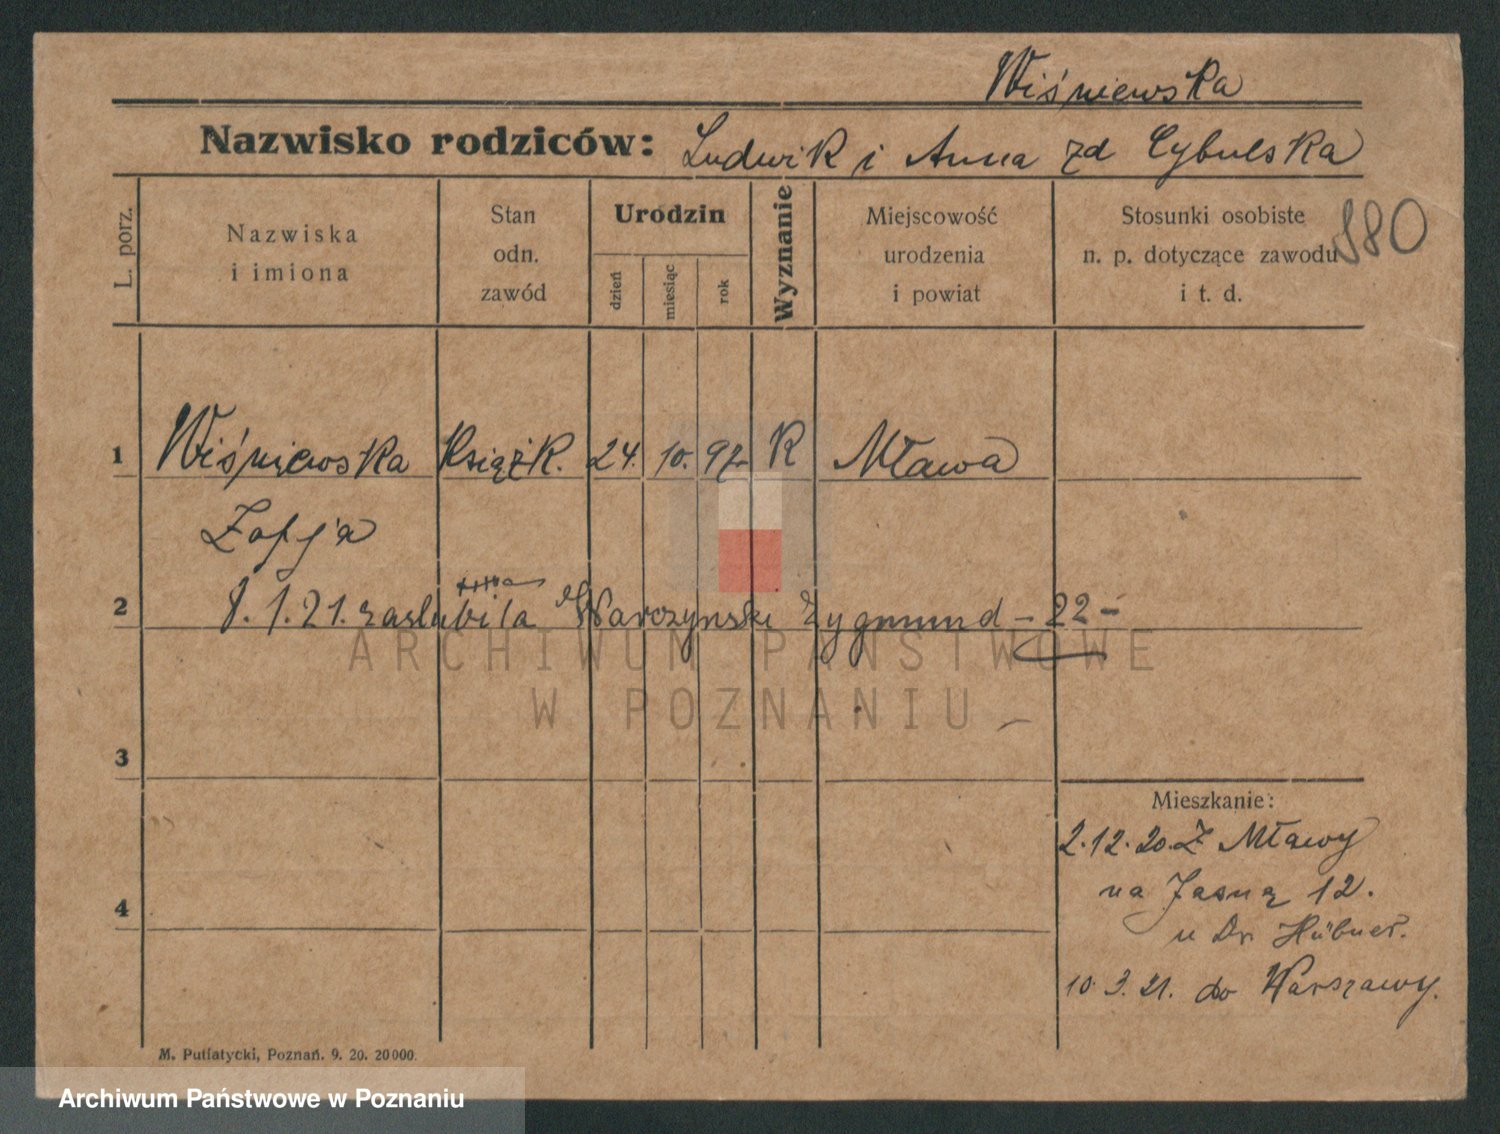 Wiśniewska
Nazwisko rodziców: Ludwik i Anna zd Cybulska
L. porz.
Nazwiska
i imiona
Stan
odn.
zawód
Urodzin
dzień
miesiąc
rok
Wyznanie
Miejscowość
urodzenia
i powiat
Stosunki osobiste
n. p. dotyczące zawodu
i t. d.
880
1 Wiśniewska Książk. 24. 10. 97 K Mława
Zofja
2 8. 1. 21. zaslubila Warczynski Zygmund - 22 -
ARCHIWUM PAŃSTWOWE
W POZNANIU
3
Mieszkanie:
2.12.20. Z Mławy
4 na Jasną 12.
u Dr. Hübner.
10. 3. 21. do Warszawy.
M. Putiatycki, Poznań. 9. 20. 20000.
Archiwum Państwowe w Poznaniu